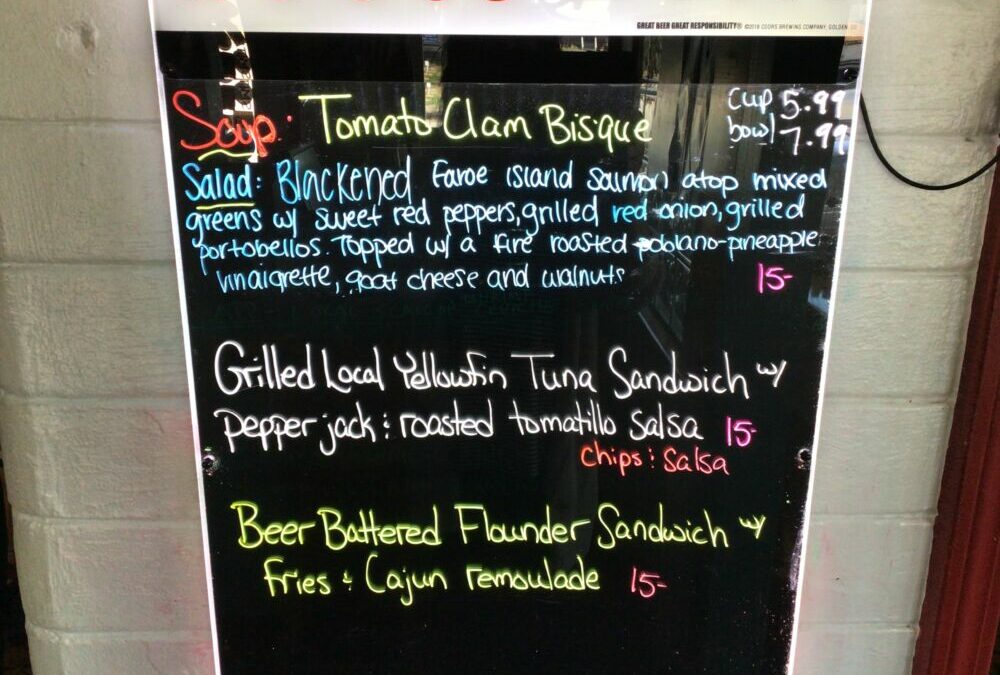 GREAT BEER GREAT RESPONSIBILITY® ©2018 COORS BREWING COMPANY, GOLDEN, CO
Soup: Tomato Clam Bisque
Cup 5.99
bowl 7.99
Salad: Blackened Faroe island salmon atop mixed
greens w/ sweet red peppers, grilled red onion, grilled
portobellos. Topped w/ a fire roasted poblano-pineapple
vinaigrette, goat cheese and walnuts 15-
Grilled Local Yellowfin Tuna Sandwich w/
pepperjack & roasted tomatillo salsa 15-
chips & salsa
Beer Battered Flounder Sandwich w/
fries & Cajun remoulade 15-